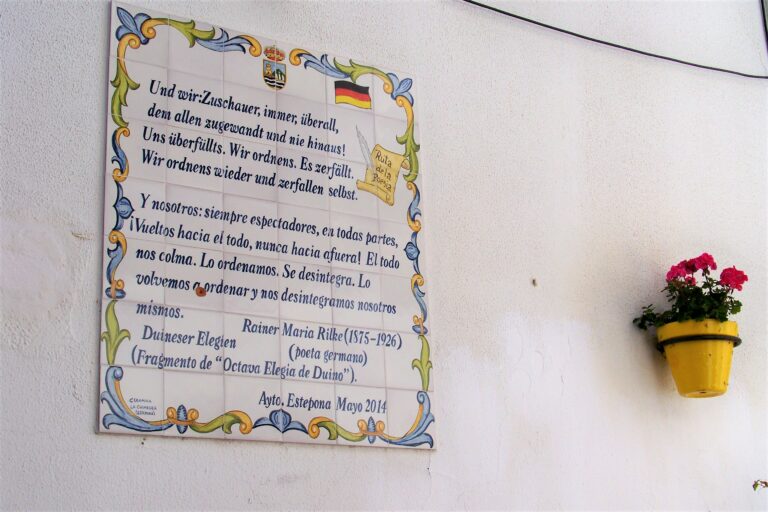 Und wir: Zuschauer, immer, überall,
dem allen zugewandt und nie hinaus!
Uns überfüllts. Wir ordnens. Es zerfällt.
Wir ordnens wieder und zerfallen selbst.
Ruta
de la
Poesía
Y nosotros: siempre espectadores, en todas partes,
¡Vueltos hacia el todo, nunca hacia afuera! El todo
nos colma. Lo ordenamos. Se desintegra. Lo
volvemos a ordenar y nos desintegramos nosotros
mismos.
Rainer Maria Rilke (1875-1926)
Duineser Elegien (poeta germano)
(Fragmento de "Octava Elegia de Duino").
Ayto. Estepona Mayo 2014
CERAMICA
LA CHIMENEA